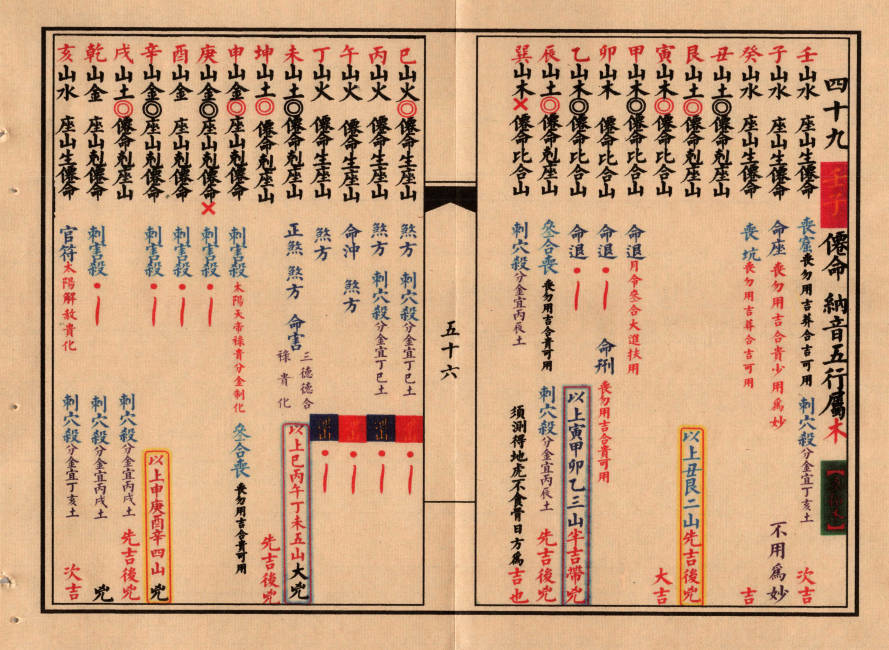 四十九 壬子 僊命 納音五行屬木
壬山水 座山生僊命 喪窟喪勿用吉葬合吉可用 刺穴殺分金宜丁亥土 次吉
子山水 座山生僊命 命座喪勿用吉合貴少用爲妙 不用爲妙
癸山水 座山生僊命 喪坑喪勿用吉葬合吉可用 吉
丑山土◎僊命剋座山
艮山土◎僊命剋座山
以上丑艮二山先吉後兇
寅山木◎僊命比合山 大吉
甲山木◎僊命比合山 命退月令叄合大進扶用
卯山木 僊命比合山 命退 命刑喪勿用吉合貴可用
乙山木◎僊命比合山 命退
以上寅甲卯乙三山半吉帶兇
辰山土◎僊命剋座山 叄合喪喪勿用吉合貴可用 刺穴殺分金宜丙辰土 先吉後兇
巽山木×僊命比合山 刺穴殺分金宜丙辰土 須測得地虎不食骨日方爲吉也
五十六
巳山火◎僊命生座山 煞方 刺穴殺分金宜丁巳土
丙山火 僊命生座山 煞方 刺穴殺分金宜丁巳土
午山火 僊命生座山 命沖 煞方
丁山火 僊命生座山 煞方
未山土◎僊命剋座山 正煞 煞方 命害 三德德合祿貴化
以上巳丙午丁未五山大兇
坤山土◎僊命剋座山 先吉後兇
申山金◎座山剋僊命 刺害殺太陽天帝祿貴分金制化 叄合喪喪勿用吉合貴可用
庚山金◎座山剋僊命× 刺害殺
酉山金 座山剋僊命 刺害殺
辛山金◎座山剋僊命 刺害殺
以上申庚酉辛四山 兇
戌山土◎僊命剋座山 刺穴殺分金宜丙戌土 先吉後兇
乾山金 座山剋僊命 刺害殺 刺穴殺分金宜丙戌土 兇
亥山水 座山生僊命 官符太陽解赦貴化 刺穴殺分金宜丁亥土 次吉